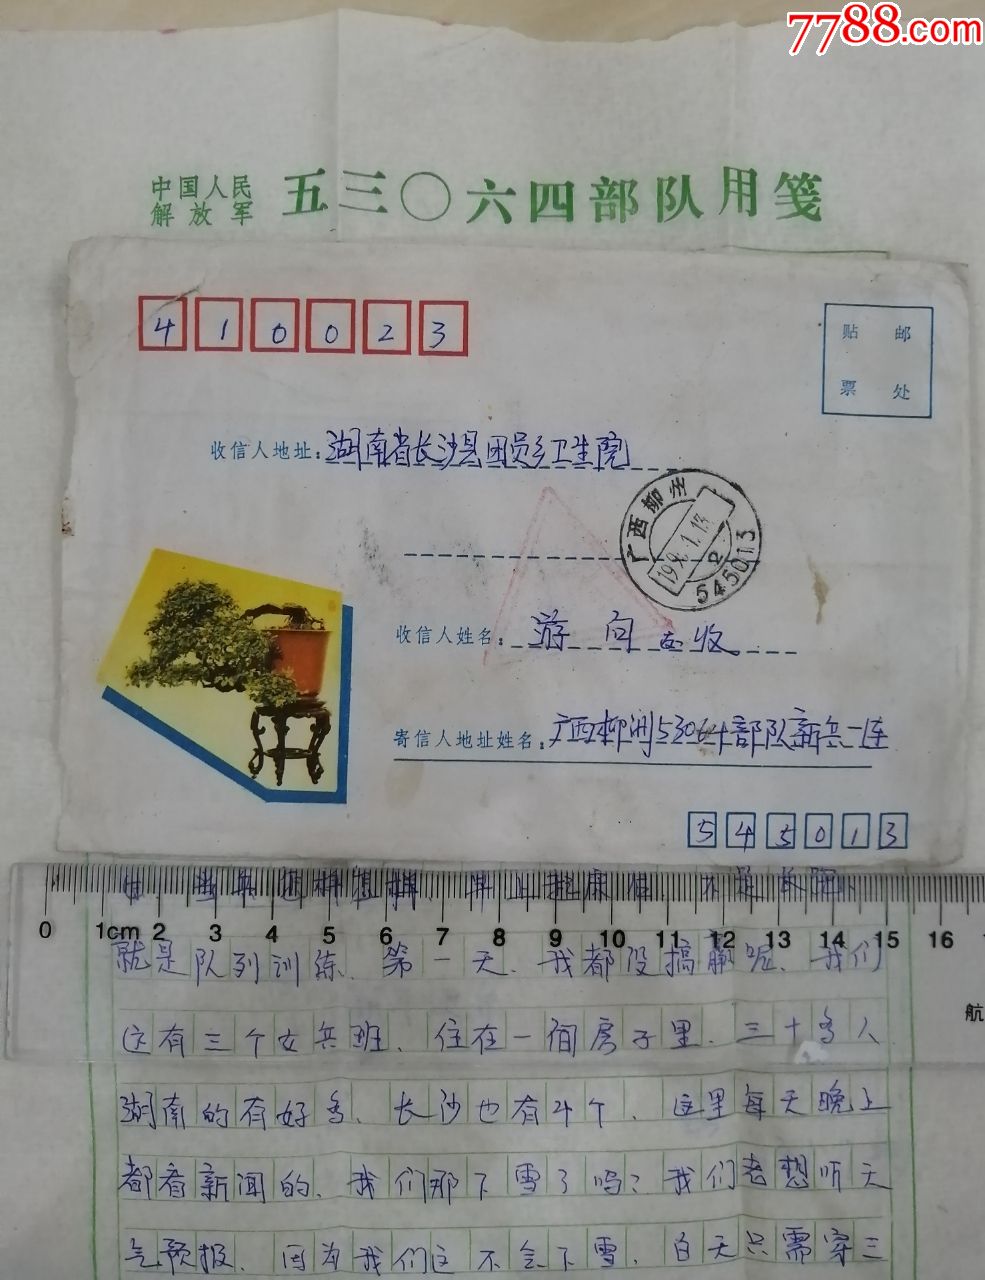 7788.com
中国人民
解放军
五三〇六四部队用笺
410023
贴 邮
票 处
收信人地址：湖南省长沙县团员乡卫生院
广西柳州
199.1.13
2
545013
收信人姓名：游向 收
寄信人地址姓名：广西柳州53064部队新兵一连
545013
0 1cm 2 3 4 5 6 7 8 9 10 11 12 13 14 15 16
航
就是队列训练、第一天、我都没搞赢呢、我们
这有三个女兵班、住在一间房子里、三十多人
湖南的有好多、长沙也有4个、这里每天晚上
都看新闻的、我们那下雪了吗？我们老想听天
气预报、因为我们这不会下雪、白天只需穿三